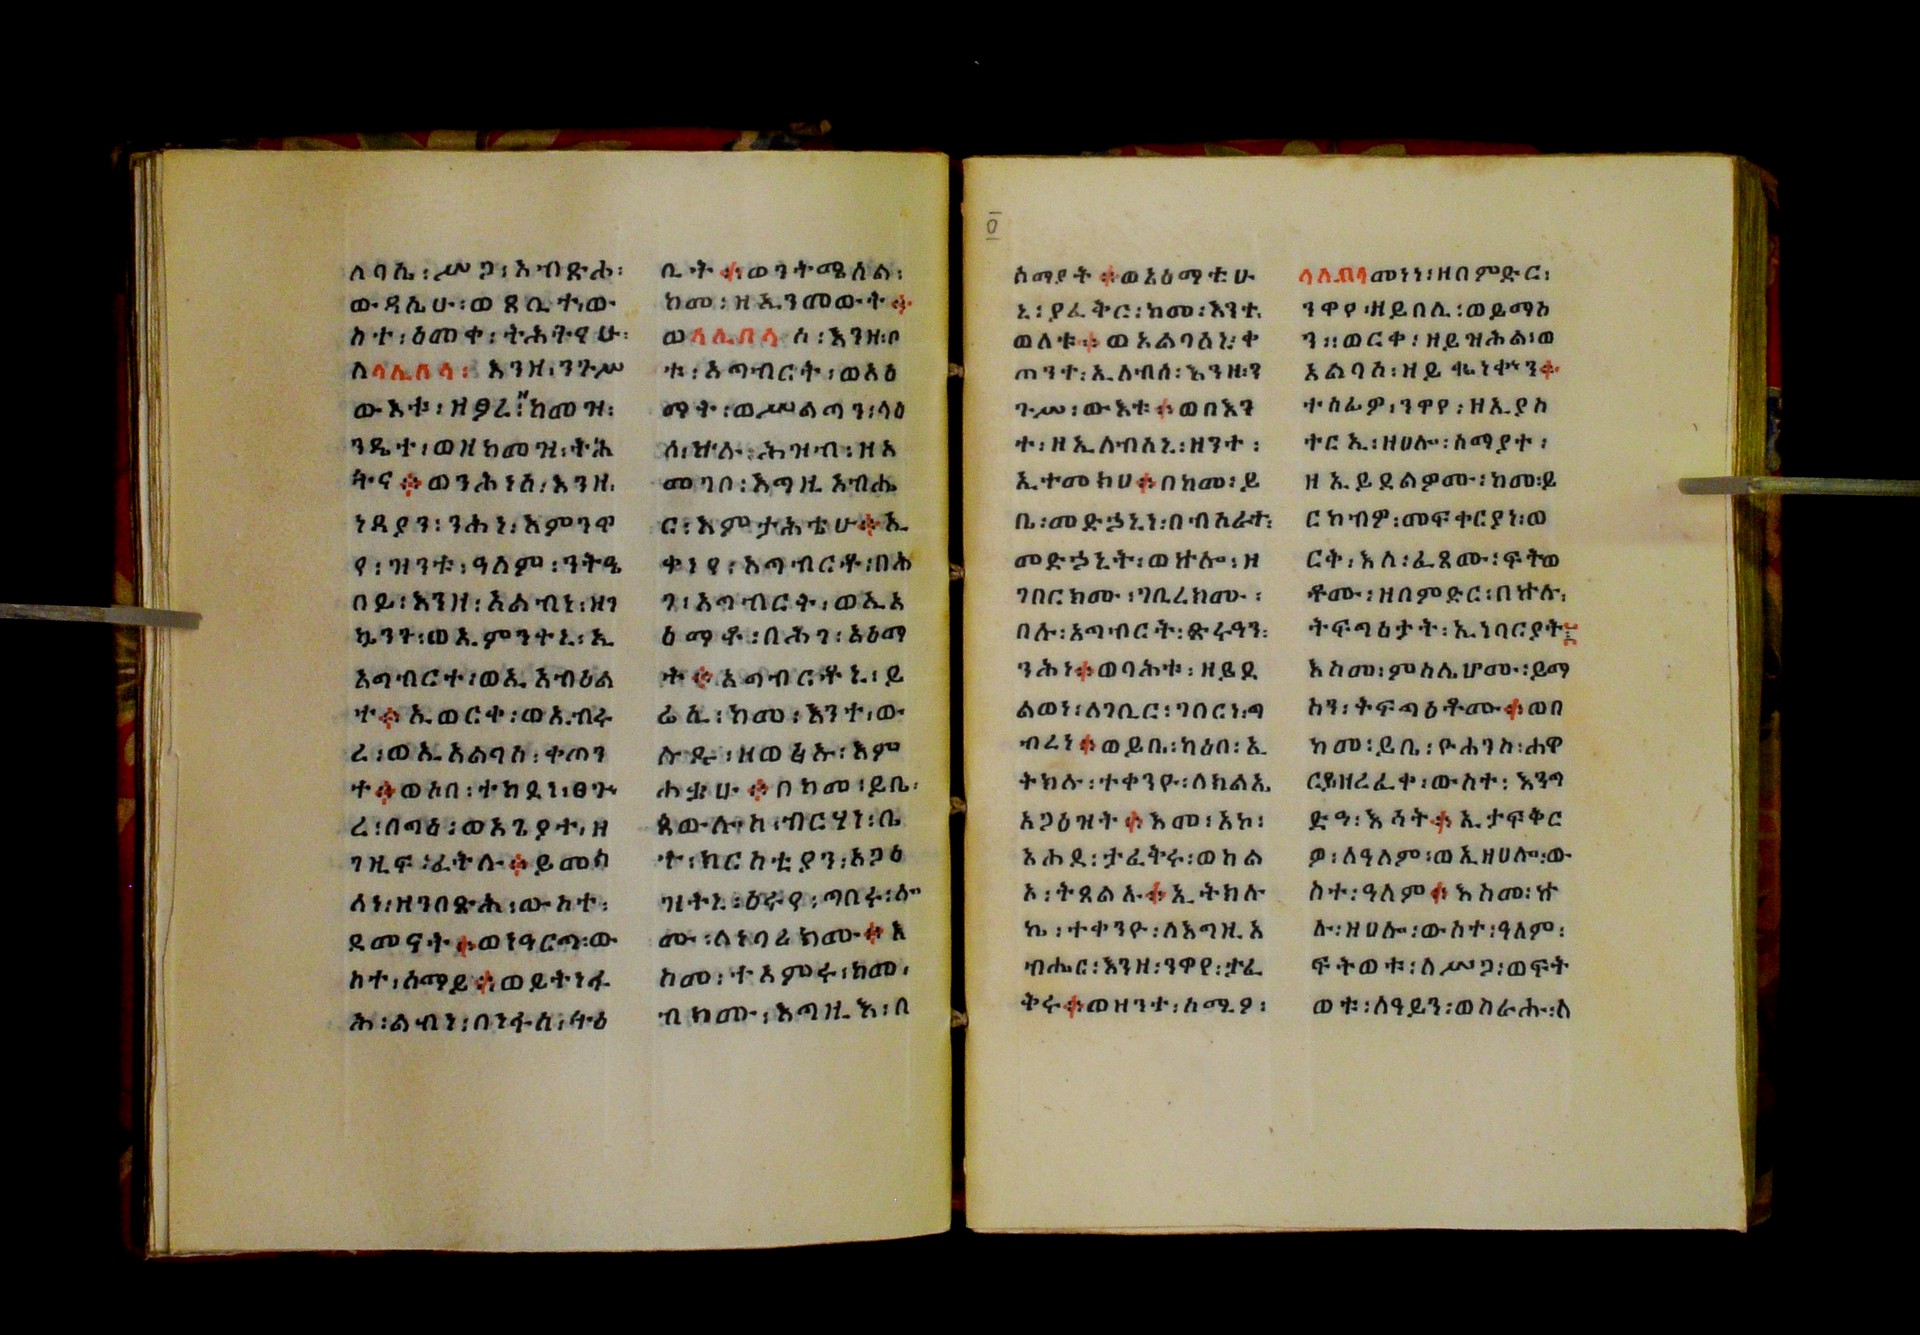 ለባሴ፡ሥጋ፡እብጽሐ፡
ውዳሴሁ፡ወጸቢተ፡ው
ስተ፡ዕመቀ፡ትሕትናሁ፡
ለላሊበላ፡ እንዘ፡ንጉሥ
ውእቱ፡ዘዖረ፡ከመዝ፡
ንዴተ፡ወዘከመዝ፡ትሕ
ትና።ወንሕነሰ፡እንዘ፡
ነዳያን፡ንሕነ፡እምንዋ
የ፡ዝንቱ፡ዓለም፡ንትዔ
በይ፡እንዘ፡አልብነ፡ዘን
ኴንን፡ወኢምንተኒ፡ኢ
አግብርተ፡ወኢ አብዕል
ተ።ኢወርቀ፡ወኢብሩ
ረ፡ወኢአልባሰ፡ቀጠን
ተ።ወእበ፡ተከደነ፡ፀጕ
ረ፡በግዕ፡ወእጌያተ፡ዘ
ገዚፍ፡ፈትሉ።ይመስ
ለነ፡ዘንበጽሕ፡ውስተ፡
ደመናት።ወነዓርግ፡ው
ስተ፡ሰማይ።ወይትነፋ
ሕ፡ልብነ፡በነፋሰ፡ትዕ
ቢት።ወንትሜሰል፡
ከመ፡ዘኢንመውት።
ወላሊበላሰ፡እንዘ፡ቦ
ቱ፡አግብርት፡ወአዕ
ማት፡ወሥልጣን፡ላዕ
ለ፡ኵሉ፡ሕዝብ፡ዘአ
መገቦ፡እግዚአብሔ
ር፡እምታሕቴሁ።ኢ
ቀነየ፡አግብርቶ፡በሕ
ገ፡አግብርት፡ወኢአ
ዕማቶ፡በሕገ፡አዕማ
ት።አግብርቶኒ፡ይ
ሬሲ፡ከመ፡እንተ፡ው
ሉዱ፡ዘወፅኡ፡እም
ሐቋሁ።በከመ፡ይቤ፡
ጳውሎስ፡ብርሃነ፡ቤ
ተ፡ክርስቲያን፡አጋዕ
ዝትኒ፡ዕሩየ፡ግበሩ፡ሎ
ሙ፡ለነባሪክሙ።አ
ከመ፡ተአምሩ፡ከመ፡
ብክሙ፡እግዚእ፡በ
ሰማያት።ወአዕማቲሁ
ኒ፡ያፈቅር፡ከመ፡እንተ
ወለቱ።ወአልባሰኒ፡ቀ
ጠንተ፡ኢለብሰ፡እንዘ፡ን
ጉሥ፡ውእቱ።ወበእን
ተ፡ዘኢለብሰኒ፡ዘንተ፡
ኢተመክሀ።በከመ፡ይ
ቤ፡መድኃኒነ፡በብስራተ፡
መድኃኒት፡ወኵሎ፡ዘ
ገበርክሙ፡ገቢረክሙ፡
በሉ፡አግብርት፡ጽሩዓን፡
ንሕነ።ወባሕቱ፡ዘይደ
ልወነ፡ለገቢር፡ገበርነ፡ግ
ብረነ።ወይቤ፡ካዕበ፡ኢ
ትክሉ፡ተቀንዮ፡ለክልኤ
አጋዕዝት።እመ፡አኮ፡
አሐደ፡ታፈቅሩ፡ወካል
አ፡ትጸልኡ።ኢትክሉ
ኬ፡ተቀንዮ፡ለእግዚአ
ብሔር፡እንዘ፡ንዋየ፡ታፈ
ቅሩ።ወዘንተ፡ሰሚዖ፡
ላሊበላመነነ፡ዘበምድር፡
ንዋየ፡ዘይበሊ፡ወይማስ
ን።ወርቀ፡ዘይዝሕል፡ወ
አልባሰ፡ዘይቈነቍን።
ተስፊዎ፡ንዋየ፡ዘኢያስ
ተርኢ፡ዘሀሎ፡ሰማያተ፡
ዘኢይደልዎሙ፡ከመ፡ይ
ርከብዎ፡መፍቀርያነ፡ወ
ርቅ፡እለ፡ፈጸሙ፡ፍትወ
ቶሙ፡ዘበምድር፡በኵሉ፡
ትፍግዕታት፡ኢነባርያት
እስመ፡ምስሌሆሙ፡ይማ
ስን፡ትፍግዕቶሙ።ወበ
ከመ፡ይቤ፡ዮሐንስ፡ሐዋ
ርይ፡ዘረፈቀ፡ውስተ፡እንግ
ድዓ፡እሳት።ኢታፍቅር
ዎ፡ለዓለም፡ወኢዘሀሎ፡ው
ስተ፡ዓለም።እስመ፡ኵ
ሉ፡ዘሀሎ፡ውስተ፡ዓለም፡
ፍትወቱ፡ለሥጋ፡ወፍት
ወቱ፡ለዓይን፡ወስራሑ፡ለ